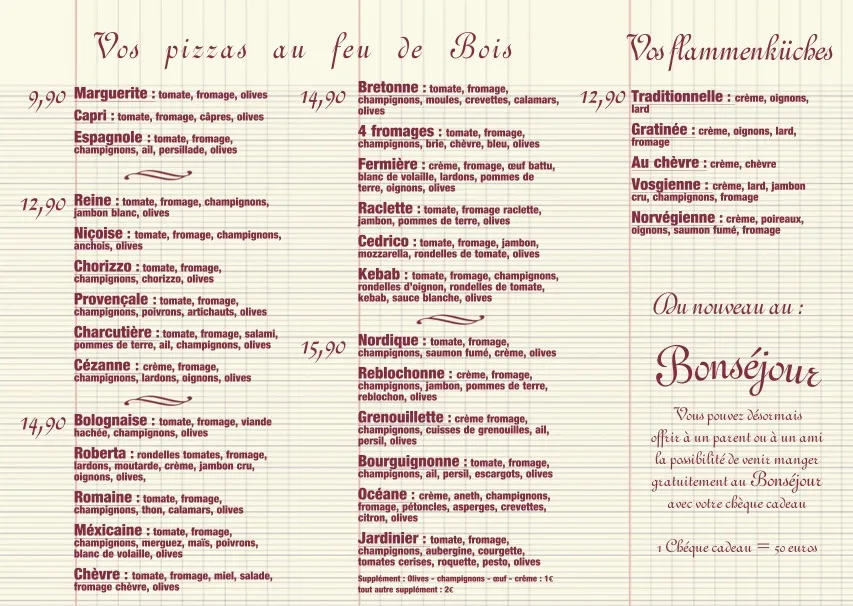 Vos pizzas au feu de Bois
9,90
Marguerite : tomate, fromage, olives
Capri : tomate, fromage, câpres, olives
Espagnole : tomate, fromage,
champignons, ail, persillade, olives
12,90
Reine : tomate, fromage, champignons,
jambon blanc, olives
Niçoise : tomate, fromage, champignons,
anchois, olives
Chorizzo : tomate, fromage,
champignons, chorizzo, olives
Provençale : tomate, fromage,
champignons, poivrons, artichauts, olives
Charcutière : tomate, fromage, salami,
pommes de terre, ail, champignons, olives
Cézanne : crème, fromage,
champignons, lardons, oignons, olives
14,90
Bolognaise : tomate, fromage, viande
hachée, champignons, olives
Roberta : rondelles tomates, fromage,
lardons, moutarde, crème, jambon cru,
oignons, olives,
Romaine : tomate, fromage,
champignons, thon, calamars, olives
Méxicaine : tomate, fromage,
champignons, merguez, maïs, poivrons,
blanc de volaille, olives
Chèvre : tomate, fromage, miel, salade,
fromage chèvre, olives
14,90
Bretonne : tomate, fromage,
champignons, moules, crevettes, calamars,
olives
4 fromages : tomate, fromage,
champignons, brie, chèvre, bleu, olives
Fermière : crème, fromage, œuf battu,
blanc de volaille, lardons, pommes de
terre, oignons, olives
Raclette : tomate, fromage raclette,
jambon, pommes de terre, olives
Cedrico : tomate, fromage, jambon,
mozzarella, rondelles de tomate, olives
Kebab : tomate, fromage, champignons,
rondelles d'oignon, rondelles de tomate,
kebab, sauce blanche, olives
15,90
Nordique : tomate, fromage,
champignons, saumon fumé, crème, olives
Reblochonne : crème, fromage,
champignons, jambon, pommes de terre,
reblochon, olives
Grenouillette : crème fromage,
champignons, cuisses de grenouilles, ail,
persil, olives
Bourguignonne : tomate, fromage,
champignons, ail, persil, escargots, olives
Océane : crème, aneth, champignons,
fromage, pétoncles, asperges, crevettes,
citron, olives
Jardinier : tomate, fromage,
champignons, aubergine, courgette,
tomates cerises, roquette, pesto, olives
Supplément : Olives - champignons - œuf - crème : 1€
tout autre supplément : 2€
Vos flammenküches
12,90
Traditionnelle : crème, oignons,
lard
Gratinée : crème, oignons, lard,
fromage
Au chèvre : crème, chèvre
Vosgienne : crème, lard, jambon
cru, champignons, fromage
Norvégienne : crème, poireaux,
oignons, saumon fumé, fromage
Du nouveau au :
Bonséjour
Vous pouvez désormais
offrir à un parent ou à un ami
la possibilité de venir manger
gratuitement au Bonséjour
avec votre chèque cadeau
1 Chéque cadeau = 50 euros